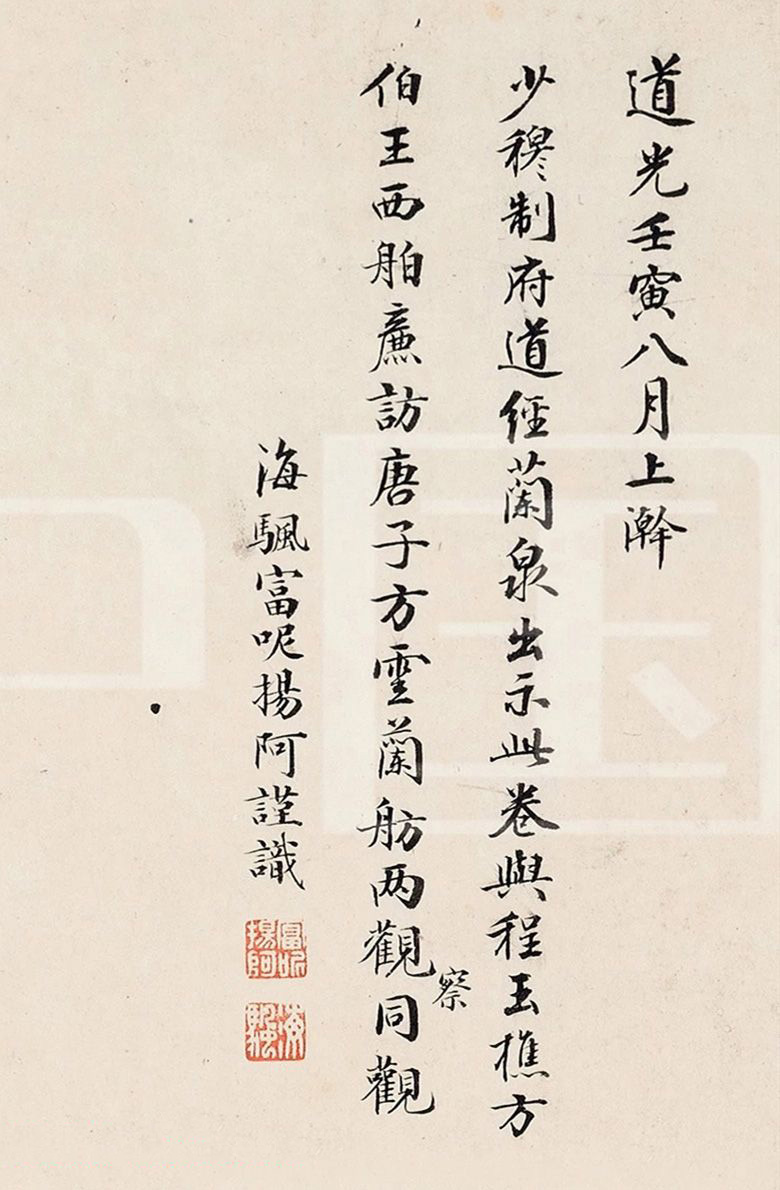 道光壬寅八月上澣
少穆制府道經蘭泉出示此卷與程玉樵方
伯王西舶廉訪唐子方雲蘭舫两觀察同觀
海颿富呢揚阿謹識
富呢揚阿
海颿